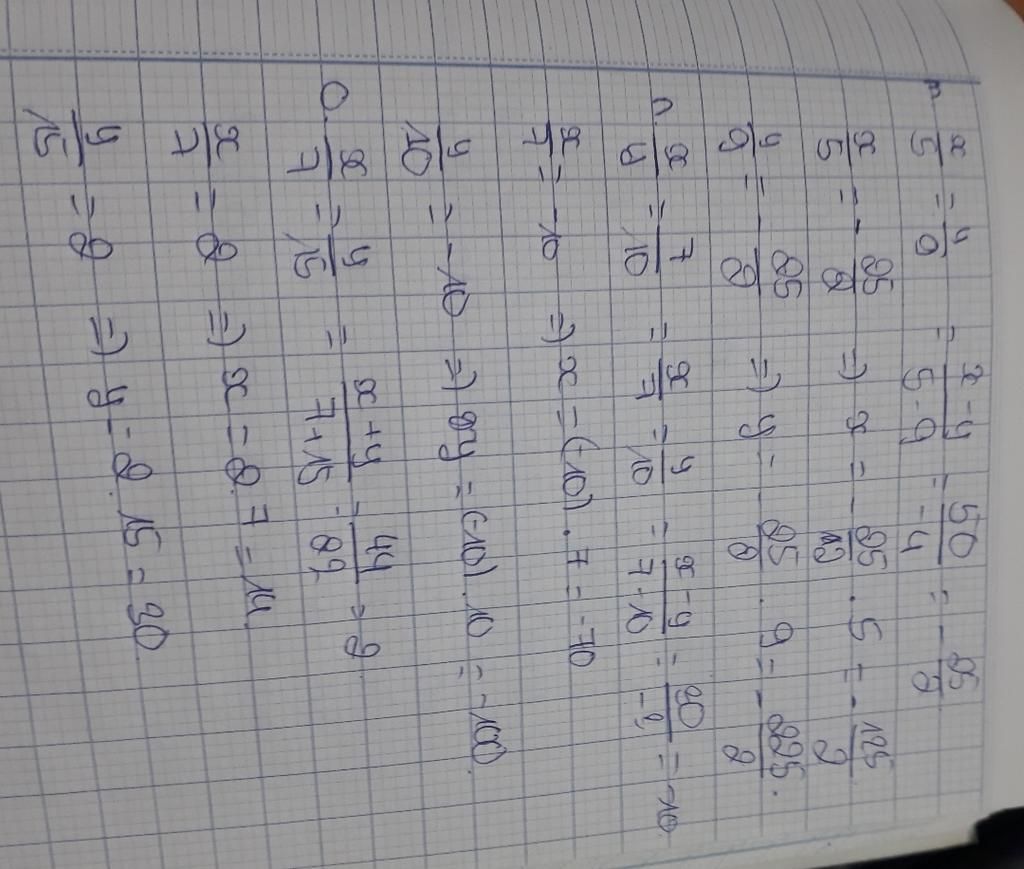 m x/5 = y/9 = x-y/5-9 = 50/-4 = -25/2
x/5 = -25/2 => x = -25/2 . 5 = -125/2
y/9 = -25/2 => y = -25/2 . 9 = -225/2.
n x/y = 7/10 = x/7 = y/10 = x-y/7-10 = 30/-3 = -10
x/7 = -10 => x = (-10) . 7 = -70
y/10 = -10 => y = (-10) . 10 = -100
O. x/7 = y/15 = x+y/7+15 = 44/22 = 2
x/7 = 2 => x = 2 . 7 = 14
y/15 = 2 => y = 2 . 15 = 30